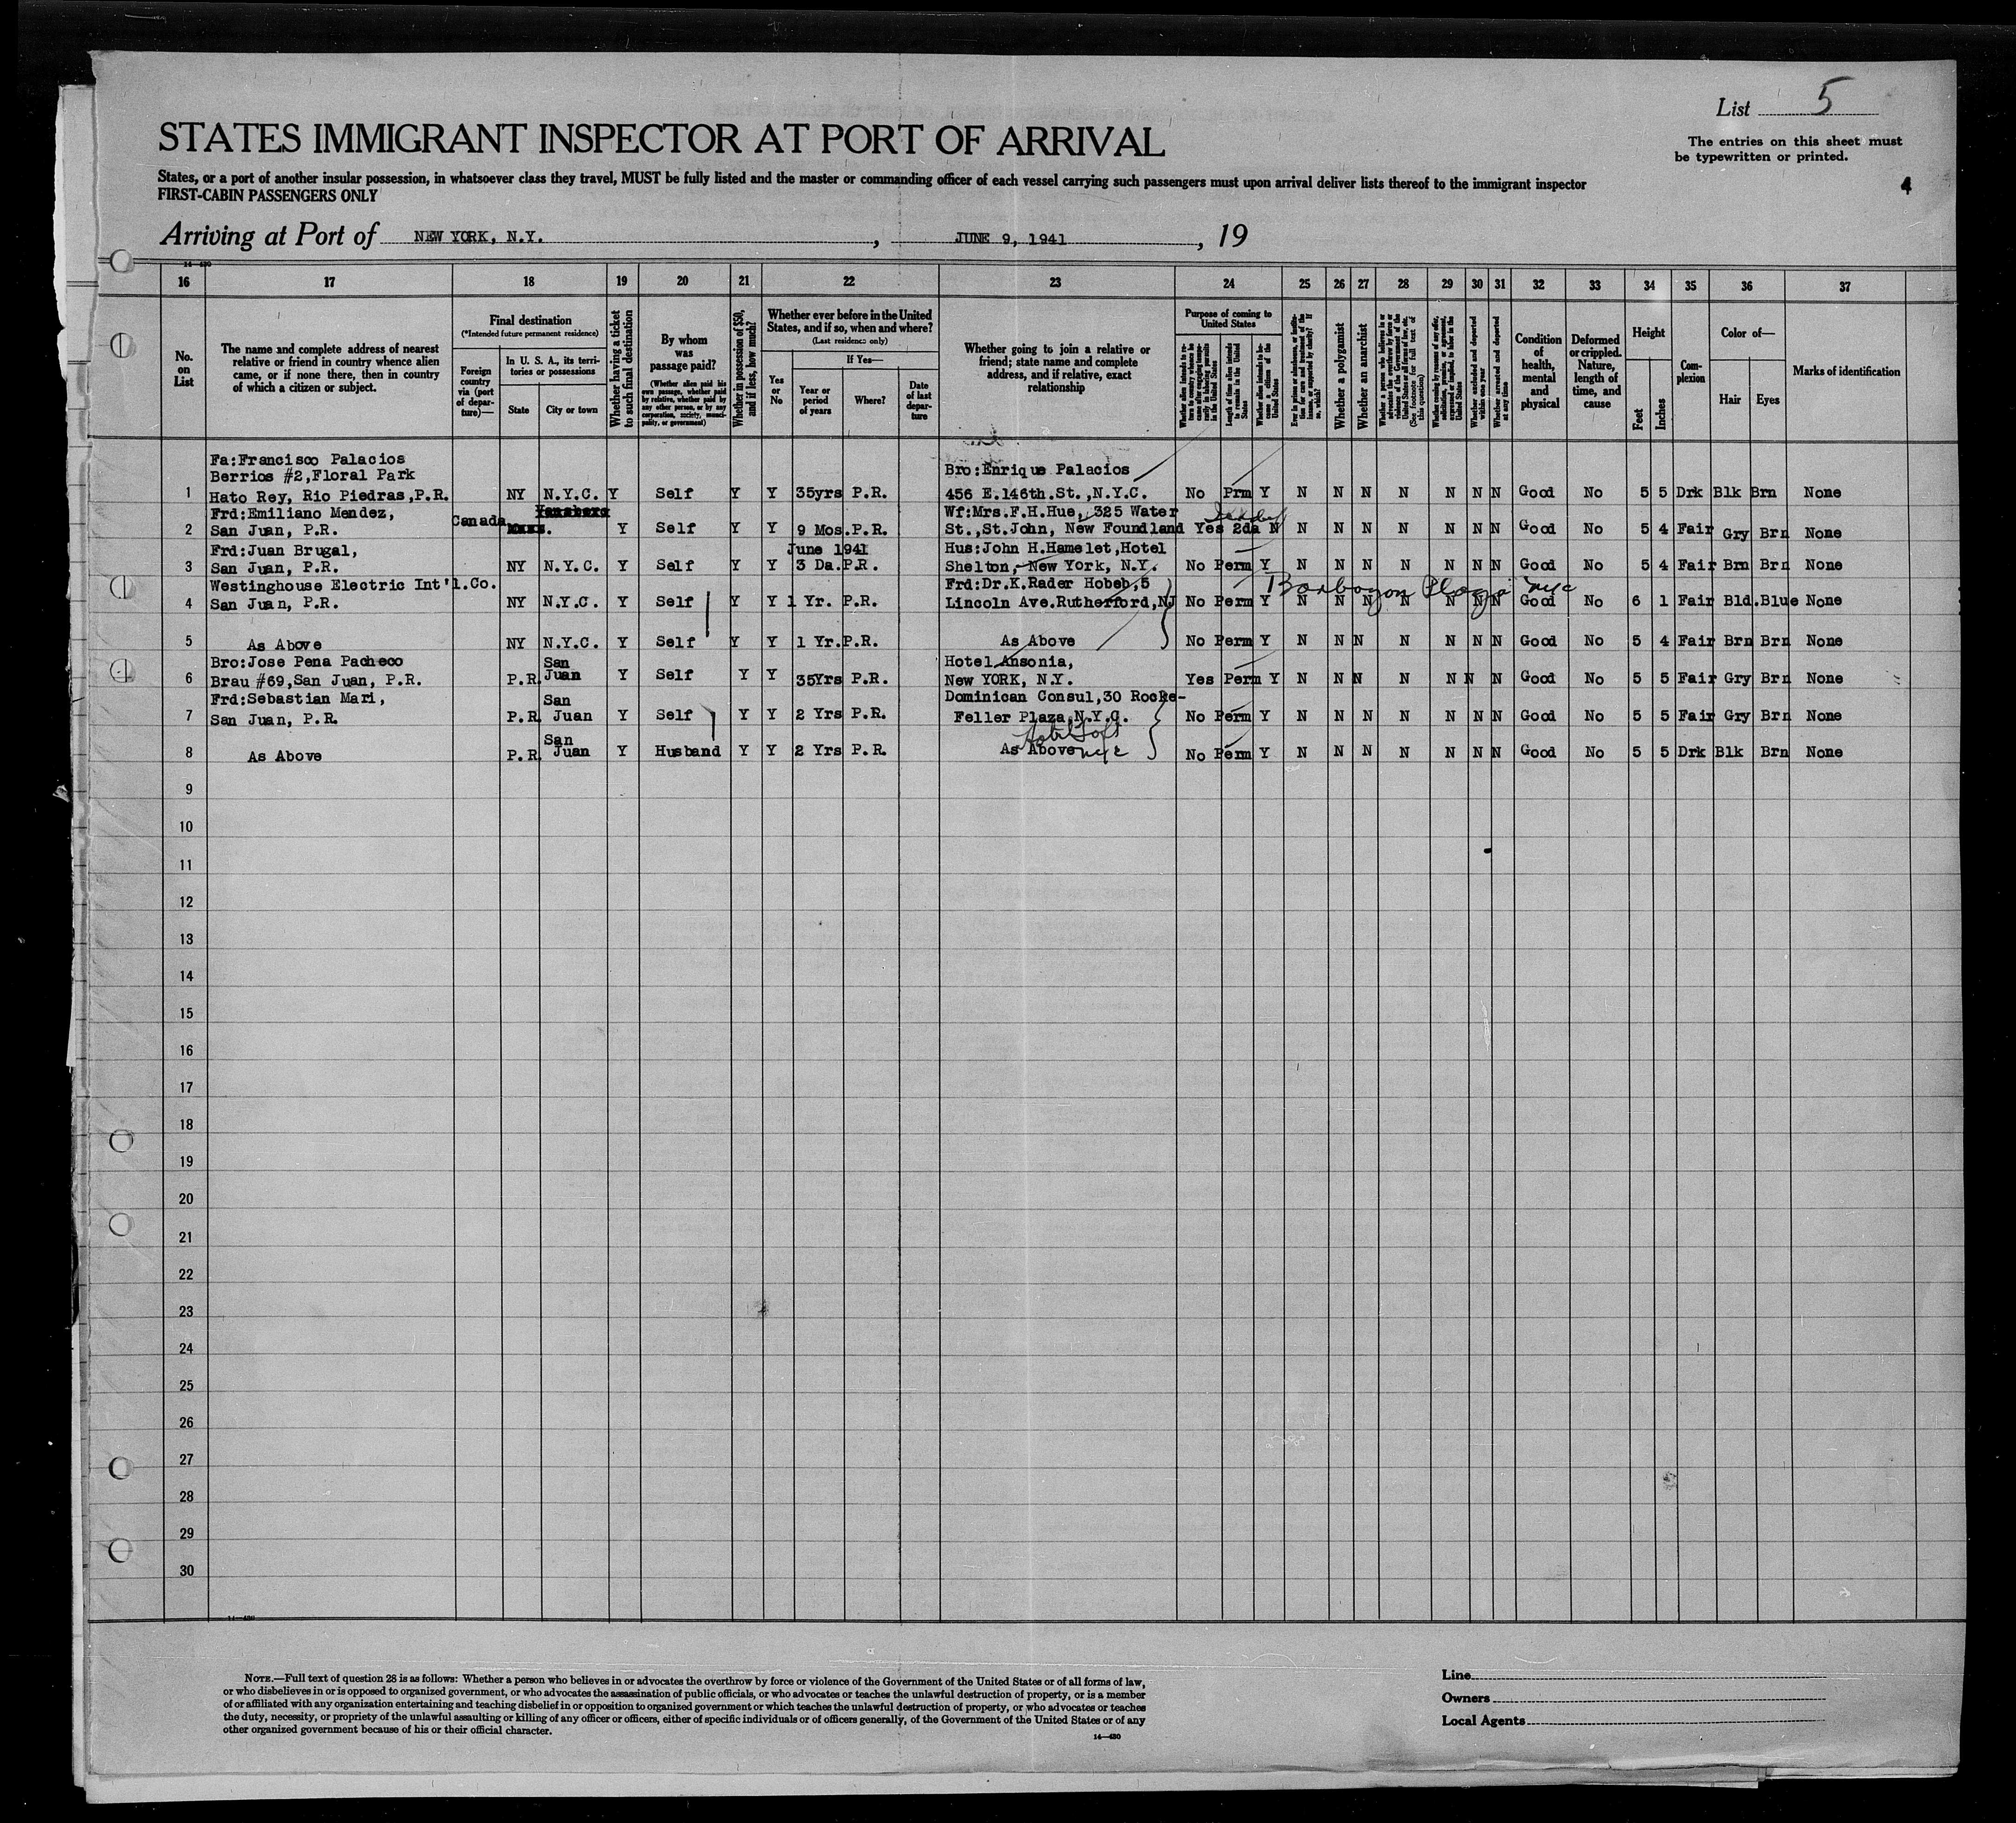 List 5
The entries on this sheet must
be typewritten or printed.
4
STATES IMMIGRANT INSPECTOR AT PORT OF ARRIVAL
States, or a port of another insular possession, in whatsoever class they travel, MUST be fully listed and the master or commanding officer of each vessel carrying such passengers must upon arrival deliver lists thereof to the immigrant inspector
FIRST-CABIN PASSENGERS ONLY
Arriving at Port of NEW YORK, N.Y. , JUNE 9, 1941 , 19
14—430
16 17 18 19 20 21 22 23 24 25 26 27 28 29 30 31 32 33 34 35 36 37
No. on List
The name and complete address of nearest relative or friend in country whence alien came, or if none there, then in country of which a citizen or subject.
Final destination
(*Intended future permanent residence)
Foreign country via (port of departure)—
In U. S. A., its territories or possessions
State
City or town
Whether having a ticket to such final destination
By whom was passage paid?
(Whether alien paid his own passage, whether paid by relative, whether paid by any other person, or by any corporation, society, municipality, or government)
Whether in possession of $50, and if less, how much?
Whether ever before in the United States, and if so, when and where?
(Last residence only)
Yes or No
If Yes—
Year or period of years
Where?
Date of last departure
Whether going to join a relative or friend; state name and complete address, and if relative, exact relationship
Purpose of coming to United States
Length of time alien intends to remain in the United States
Whether alien intends to become a citizen of the United States
Whether a polygamist
Whether an anarchist
(See footnote for full text of this question)
Whether arrested and deported at any time
Condition of health, mental and physical
Deformed or crippled. Nature, length of time, and cause
Height
Feet
Inches
Complexion
Color of—
Hair
Eyes
Marks of identification
Fa:Francisco Palacios
Berrios #2,Floral Park Bro:Enrique Palacios
1 Hato Rey, Rio Piedras,P.R. NY N.Y.C. Y Self Y Y 35yrs P.R. 456 E.146th.St.,N.Y.C. No Prm Y N N N N N N N Good No 5 5 Drk Blk Brn None
Frd:Emiliano Mendez, Canada Wf:Mrs.F.H.Hue, 325 Water
2 San Juan, P.R. Y Self Y Y 9 Mos.P.R. St.,St.John, New Foundland Yes 2da N N N N N N N N Good No 5 4 Fair Gry Brn None
Frd:Juan Brugal, June 1941 Hus:John H.Hamelet,Hotel
3 San Juan, P.R. NY N.Y.C. Y Self Y Y 3 Da.P.R. Shelton, New York, N.Y. No Perm Y N N N N N N N Good No 5 4 Fair Brn Brn None
Westinghouse Electric Int'l.Co. Frd:Dr.K.Rader Hobeb,5 Barbazon Plaza nyc
4 San Juan, P.R. NY N.Y.C. Y Self Y Y 1 Yr. P.R. Lincoln Ave.Rutherford,NJ No Perm Y N N N N N N N Good No 6 1 Fair Bld.Blue None
5 As Above NY N.Y.C. Y Self Y Y 1 Yr.P.R. As Above No Perm Y N N N N N N N Good No 5 4 Fair Brn Brn None
Bro:Jose Pena Pacheco San Hotel Ansonia,
6 Brau #69,San Juan, P.R. P.R. Juan Y Self Y Y 35Yrs P.R. New YORK, N.Y. Yes Perm Y N N N N N N N Good No 5 5 Fair Gry Brn None
Frd:Sebastian Mari, San Dominican Consul,30 Rocke-
7 San Juan, P.R. P.R. Juan Y Self Y Y 2 Yrs P.R. Feller Plaza,N.Y.C. No Perm Y N N N N N N N Good No 5 5 Fair Gry Brn None
San
8 As Above P.R. Juan Y Husband Y Y 2 Yrs P.R. As Above nyc No Perm Y N N N N N N N Good No 5 5 Drk Blk Brn None
9
10
11
12
13
14
15
16
17
18
19
20
21
22
23
24
25
26
27
28
29
30
14—430
NOTE.—Full text of question 28 is as follows: Whether a person who believes in or advocates the overthrow by force or violence of the Government of the United States or of all forms of law,
or who disbelieves in or is opposed to organized government, or who advocates the assassination of public officials, or who advocates or teaches the unlawful destruction of property, or is a member
of or affiliated with any organization entertaining and teaching disbelief in or opposition to organized government or which teaches the unlawful destruction of property, or who advocates or teaches
the duty, necessity, or propriety of the unlawful assaulting or killing of any officer or officers, either of specific individuals or of officers generally, of the Government of the United States or of any
other organized government because of his or their official character.
14—430
Line
Owners
Local Agents